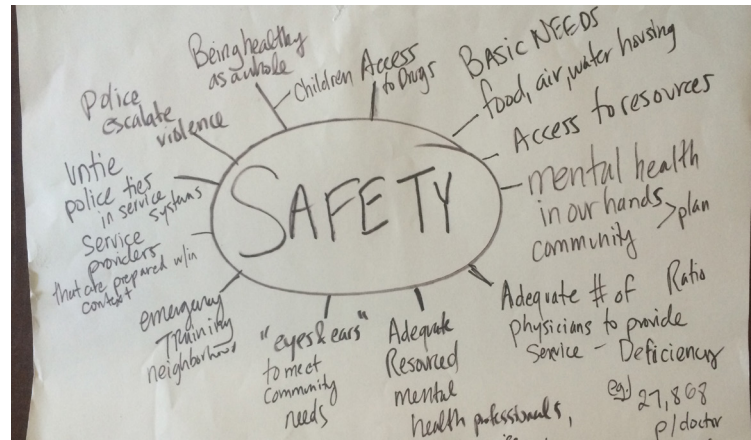 SAFETY
Being healthy
as a whole
Children
Access
to Drugs
BASIC NEEDS
food, air, water housing
Access to resources
mental health
in our hands
community > plan
Adequate # of Ratio
physicians to provide
Service - Deficiency
eg) 27,868
p/doctor
Adequate
Resourced
mental
health professionals,
"eyes & ears"
to meet
community
needs
emergency
Training
neighborhood
Service
providers
that are prepared w/in
context
Untie
police ties
in service
systems
Police
escalate
violence